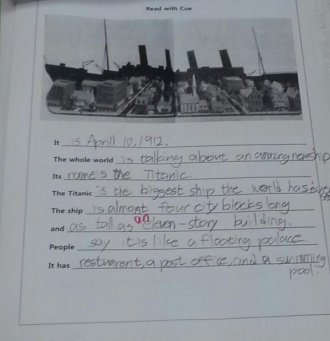 Read with Cue
It is Aprill 10, 1912.
The whole world is talking about an amazing new ship
Its name's the Titanic
The Titanic is the biggest ship the world has ever
The ship is almost four city blocks long
and as tall as an eleven-story building.
People say it is like a floating palace.
It has resturent, a post office, and a swimming
pool.